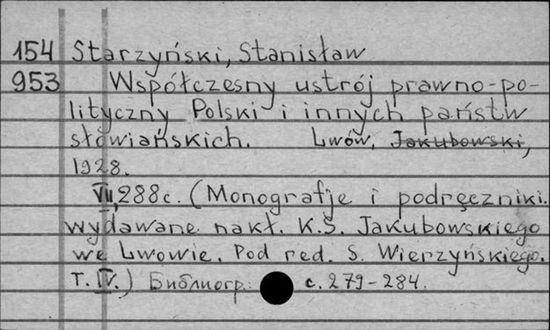 154 Starzyński, Stanisław
953 Współczesny ustrój prawno-po-
lityczny Polski i innych państw
słowiańskich. Lwów, Jakubowski,
1928.
VII, 288 c. (Monografje i podręczniki.
wydawane nakł. K.S. Jakubowskiego
we Lwowie. Pod red. S. Wierzyńskiego.
T. IV.) Библиогр. с. 279-284.